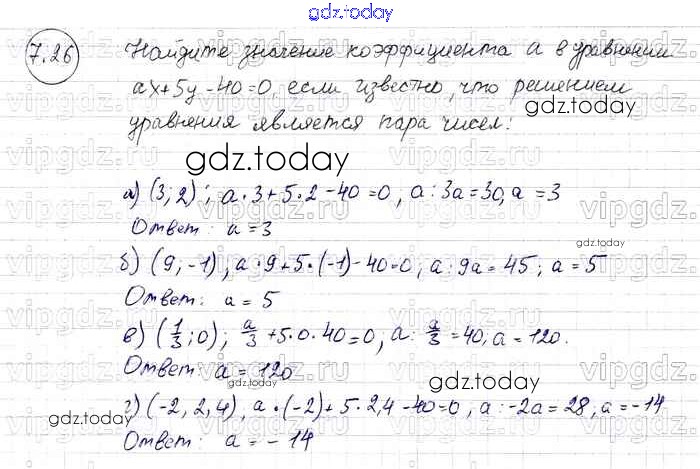 gdz.today
7.26
Найдите значение коэффициента a в уравнении
ax+5y-40=0, если известно, что решением
gdz.today
уравнения является пара чисел:
gdz.today
а) (3; 2); a·3+5·2-40=0, a: 3a=30, a=3
Ответ: a=3
gdz.today
б) (9; -1), a·9+5·(-1)-40=0, a: 9a=45; a=5
Ответ: a=5
в) (1/3; 0); a/3+5·0·40=0, a: a/3=40, a=120.
Ответ: a=120
gdz.today
gdz.today
г) (-2, 2,4), a·(-2)+5·2,4-40=0, a: -2a=28, a=-14
gdz.today
Ответ: a=-14
vipgdz.ru vipgdz.ru vipgdz.ru vipgdz.ru